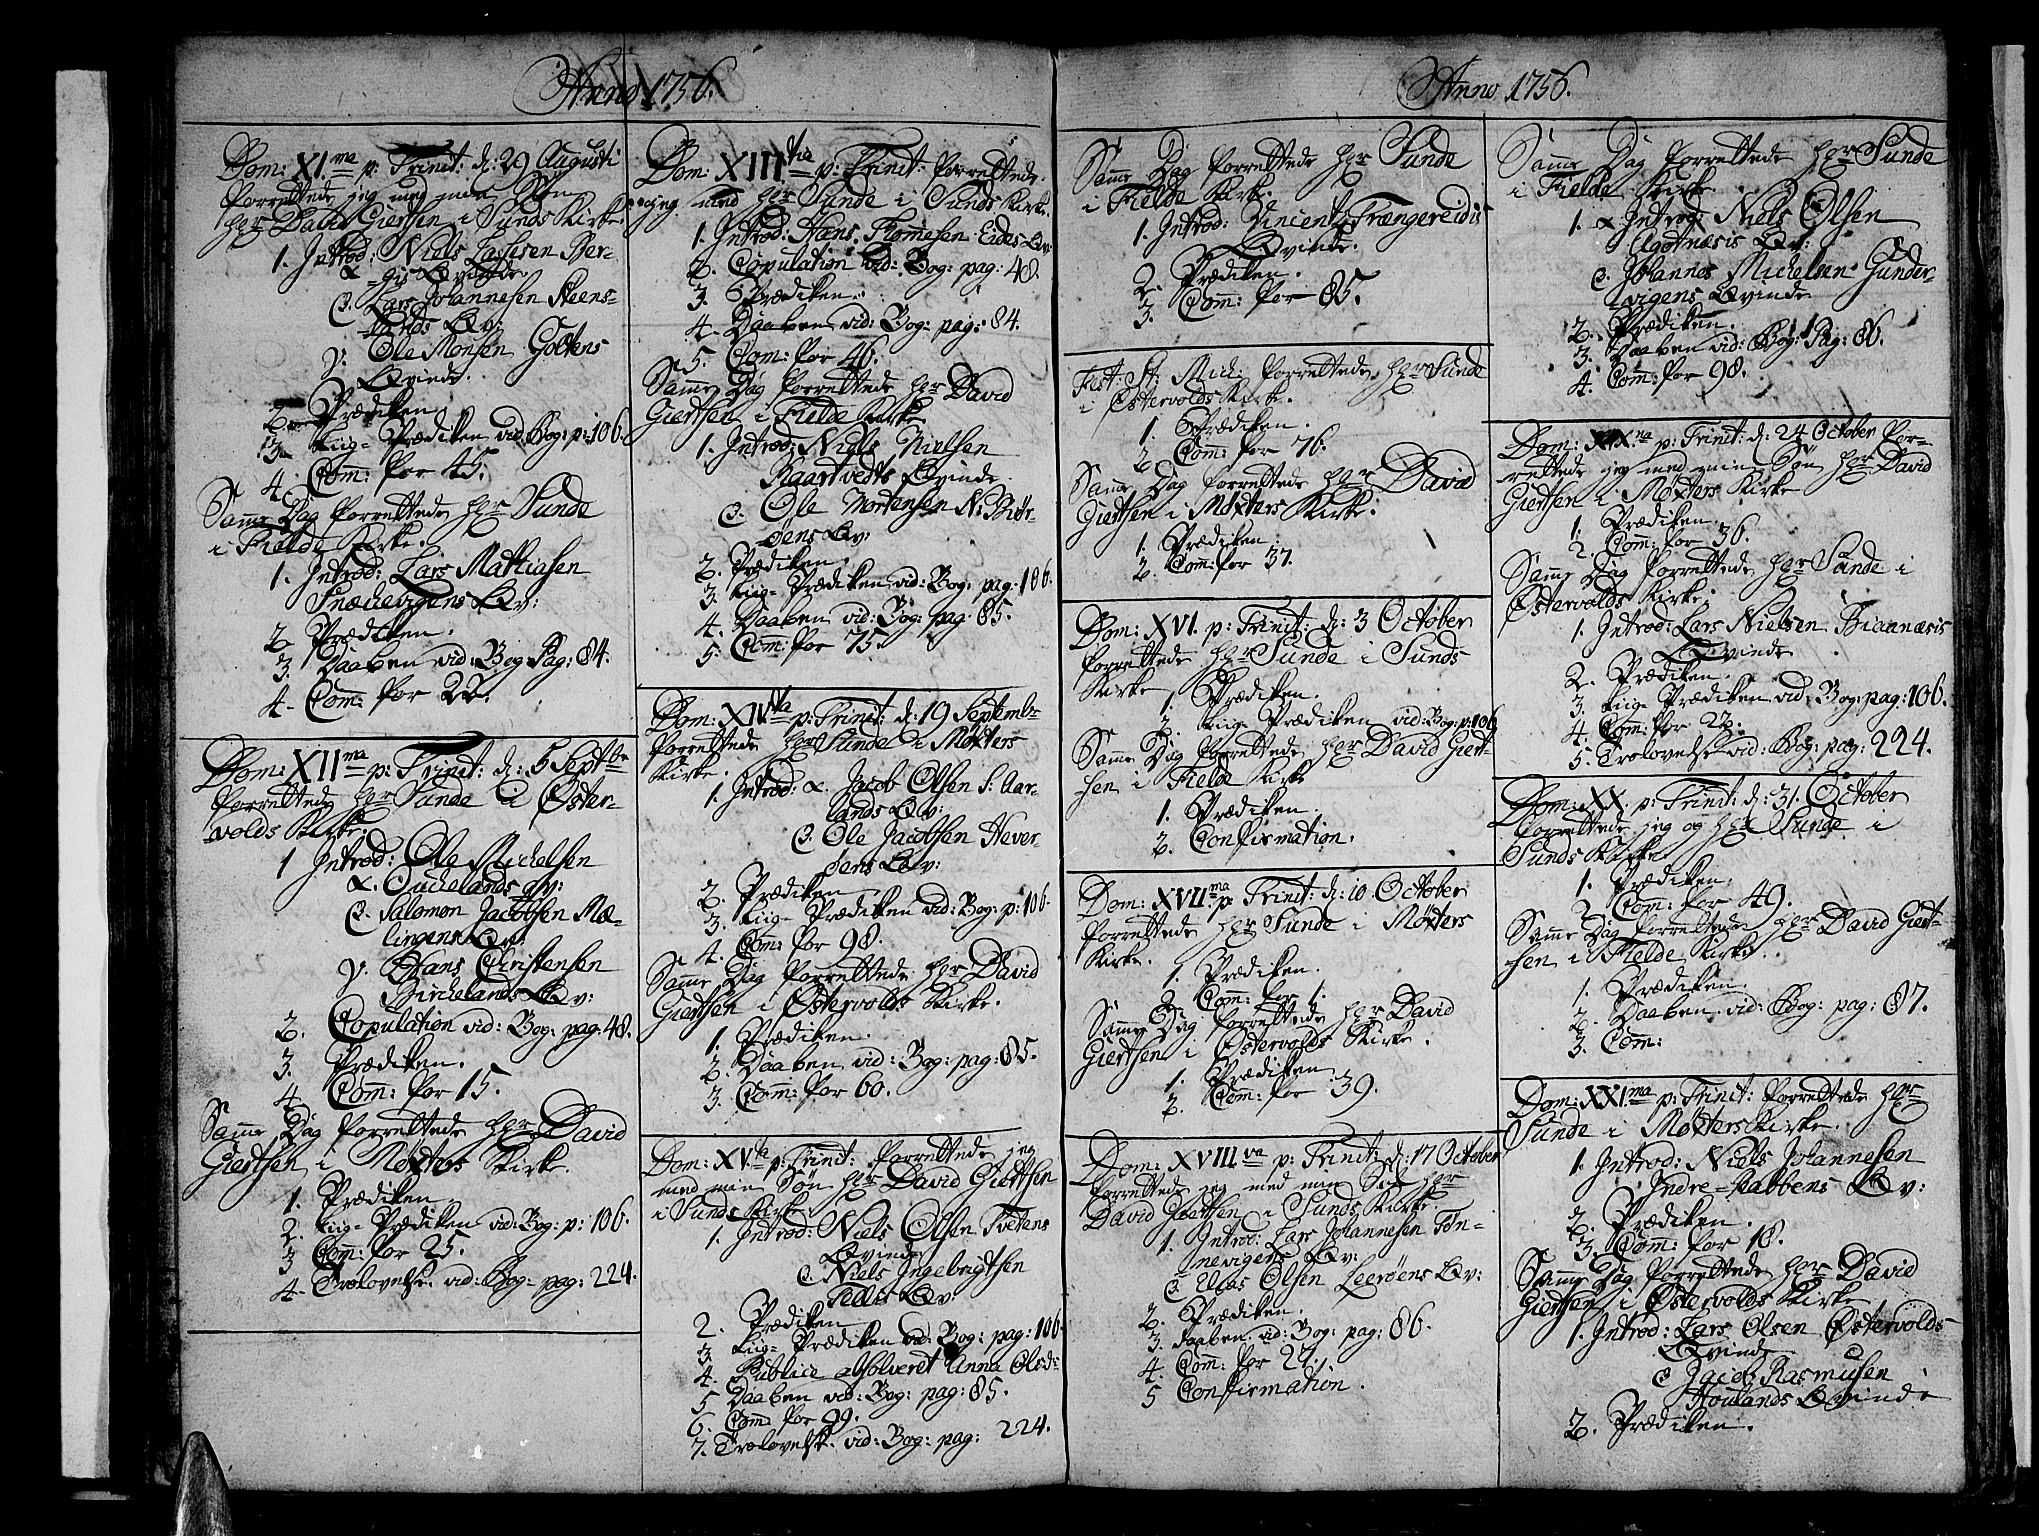 Anno 1756.
Dom: XI.ma p: Trinit: d: 29 Augusti
forrettede jeg med min Søn
hr David Giertsen i Sunds Kirke.
1. Introd: Niels Larsen Ber-
α gis Qvinde
β. Lars Johannesen Steens-
lands Qv:
γ. Ole Monsen Goltens
Qvinde.
2. Prædiken.
3. Liig-Prædiken vid: Bog: p: 106.
4. Com̄: for 45.
Samme Dag forrettede hr Sunde
i Fielde Kirke.
1. Introd: Lars Mathiasen
Snechevigens Qv:
2. Prædiken.
3. Daaben vid: Bog Pag: 84.
4. Com̄: for 22.
Dom: XII ma p: Trinit: d: 5 Septbr
forrettede hr Sunde i Øster-
volds Kirke.
1 Introd: Ole Michelsen
α. Suchelands qv:
β. Salomon Jacobsen Mæ-
lingens Qv:
γ. Hans Christensen
Birchelands Qv:
2. Copulation vid: Bog: pag: 48.
3. Prædiken.
4. Com̄: for 15.
Samme Dag forrettede hr David
Giertsen i Møxters Kirke.
1. Prædiken
2. Liig-Prædiken vid: Bog: p: 106.
3 Com̄: for 25.
4. Trolovelse vid: Bog: pag: 224.
Dom: XIII tia p: Trinit: forrettede
jeg med hr Sunde i Sunds Kirke.
1. Introd: Hans Thomesen Eides Qv:
2. Copulation vid: Bog: pag: 48.
3. Prædiken.
4. Daaben vid: Bog: pag: 84.
5. Com̄: for 46.
Samme Dag forrettede hr David
Giertsen i Fielde Kirke
1. Introd: Niels Nielsen
Kaartvedts Qvinde
β. Ole Mortensen N: Biør-
øens Qv:
2. Prædiken.
3. Liig-Prædiken vid: Bog: pag. 106.
4. Daaben vid: Bog: pag: 85.
5. Com̄: for 75.
Dom: XIV. ta p: Trinit: d: 19 Septembr
forrettede hr Sunde i Møxters
Kirke.
1. Introd: α. Jacob Olsen S: Aar-
lands Qv:
β. Ole Jacobsen Hever-
øens Qv:
2. Prædiken
3. Liig-Prædiken vid: Bog: p: 106.
4. Com̄: for 98.
Samme Dag forrettede hr David
Giertsen i Østervolds Kirke.
1. Prædiken.
2. Daaben vid: Bog: pag: 85.
3. Com̄: for 60.
Dom: XV. ta p: Trinit: forrettede jeg
med min Søn hr David Giertsen
i Sunds Kirke.
1. Introd: Niels Olsen Tvetens
Qvinde
β. Niels Ingebrigtsen
Qv:
2. Prædiken
3. Liig-Prædiken vid: Bog: pag: 106.
4. Publice absolveret Anna Olsdr
5 Daaben vid: Bog: pag: 85.
6. Com̄: for 99.
7. Trolovelse vid: Bog: pag: 224.
Anno 1756.
Samme Dag forrettede hr Sunde
i Fielde Kirke.
1. Introd: Vincents Trængereidis
Qvinde.
2. Prædiken.
3. Com̄: for 85.
Fest: St: Mich: forrettede hr Sunde
i Østervolds Kirke.
1. Prædiken.
2. Com̄: for 76.
Samme Dag forrettede hr David
Giertsen i Møxters Kirke.
1. Prædiken.
2. Com̄: for 37.
Dom: XVI. p: Trinit: d: 3 October
forrettede hr Sunde i Sunds
Kirke
1. Prædiken.
2. Liig-Prædiken vid: Bog: p: 106
Samme Dag forrettede hr David Giert-
sen i Fielde Kirke
1. Prædiken.
2. Confirmation.
Dom: XVII ma p: Trinit: d: 10 October
forrettede hr Sunde i Møxters
Kirke.
1. Prædiken.
2. Com̄: for 1.
Samme Dag forrettede hr David
Giertsen i Østervolds Kirke.
1. Prædiken
2. Com̄: for 39.
Dom: XVIII. va p: Trinit: d: 17 October
forrettede jeg med min Søn hr
David Giertsen i Sunds Kirke.
1. Introd: Lars Johannesen Tøn-
nevigens Qv:
β. Elias Olsen Leerøens Qv:
2. Prædiken.
3. Daaben vid: Bog: pag: 86.
4. Com̄: for 27.
5 Confirmation.
Samme Dag forrettede hr Sunde
i Fielde Kirke
1. α Introd: Niels Olsen
Agotnæsis Qv:
β. Johannes Michelsen Gunder-
vigens Qvinde
2. Prædiken.
3. Daaben vid: Bog: Pag: 86.
4. Com̄: for 98.
Dom: XIX na p: Trinit: d: 24 October for-
rettede jeg med min Søn hr David
Giertsen i Møxters Kirke
1. Prædiken.
2. Com̄: for 36.
Samme Dag forrettede hr Sunde i
Østervolds Kirke.
1. Introd: Lars Nielsen Biannæsis
Qvinde
2. Prædiken.
3. Liig-Prædiken vid: Bog: pag: 106.
4. Com̄: for 22.
5. Trolovelse vid: Bog: pag: 224.
Dom: XX. p: Trinit: d: 31. October
forrettede jeg og hr Sunde i
Sunds Kirke
1. Prædiken.
2. Com̄: for 49.
Samme Dag forrettede hr David Giert-
sen i Fielde Kirke.
1. Prædiken.
2. Daaben vid: Bog: pag: 87.
3. Com̄:
Dom: XXI ma p: Trinit: forrettede hr
Sunde i Møxters Kirke.
1. Introd: Niels Johannesen
Indre-Pabbens Qv:
2. Prædiken.
3. Com̄: for 18.
Samme Dag forrettede hr David
Giertsen i Østervolds Kirke
1. Introd: Lars Olsen Østervolds
Qvinde
β Jacob Rasmusen
Houlands Qvinde
2. Prædiken.